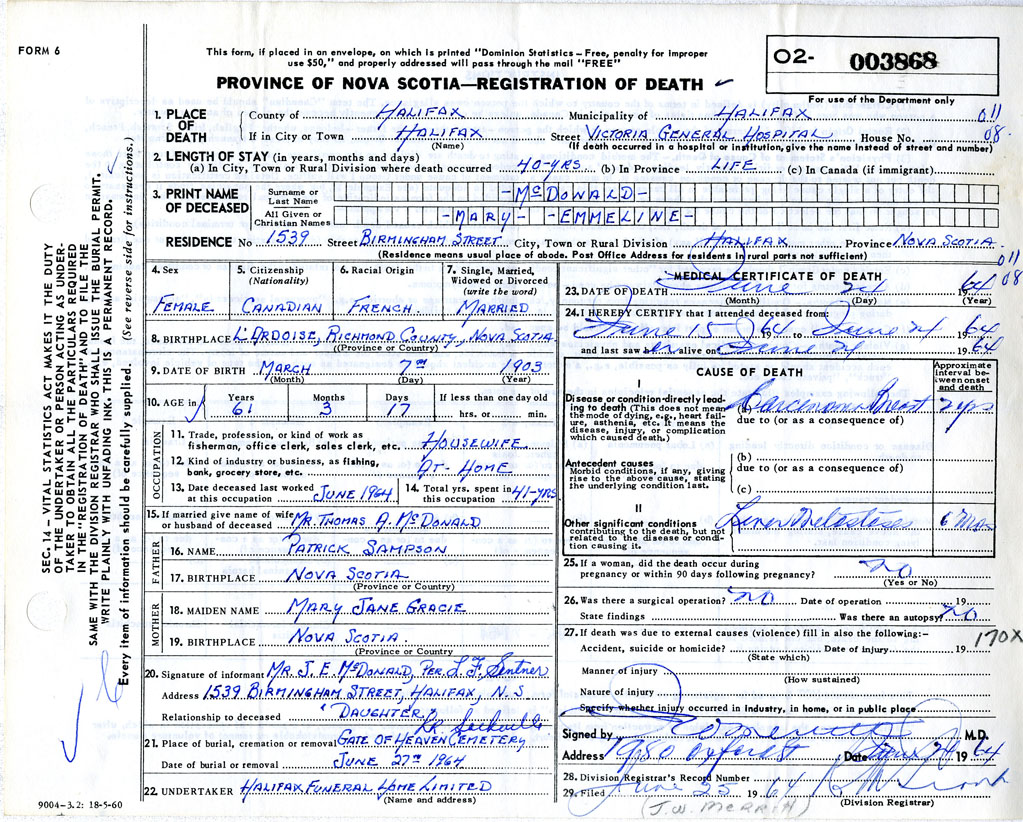 FORM 6
This form, if placed in an envelope, on which is printed "Dominion Statistics – Free, penalty for improper
use $50," and properly addressed will pass through the mail "FREE"
PROVINCE OF NOVA SCOTIA—REGISTRATION OF DEATH
02- 003868
For use of the Department only
1. PLACE OF DEATH
County of HALIFAX Municipality of HALIFAX 011
If in City or Town HALIFAX Street VICTORIA GENERAL HOSPITAL House No. 08
(Name) (If death occurred in a hospital or institution, give the name instead of street and number)
2. LENGTH OF STAY (in years, months and days)
(a) In City, Town or Rural Division where death occurred 40-YRS. (b) In Province LIFE (c) In Canada (if immigrant)
3. PRINT NAME OF DECEASED
Surname or Last Name -McDONALD-
All Given or Christian Names -MARY- -EMMELINE-
RESIDENCE No 1539 Street BIRMINGHAM STREET City, Town or Rural Division HALIFAX Province NOVA SCOTIA
(Residence means usual place of abode. Post Office Address for residents in rural parts not sufficient)
011
08
4. Sex
FEMALE
5. Citizenship
(Nationality)
CANADIAN
6. Racial Origin
FRENCH
7. Single, Married,
Widowed or Divorced
(write the word)
MARRIED
8. BIRTHPLACE L'ARDOISE, RICHMOND COUNTY, NOVA SCOTIA
(Province or Country)
9. DATE OF BIRTH MARCH 7TH 1903
(Month) (Day) (Year)
10. AGE in
Years Months Days If less than one day old
61 3 17 hrs. or min.
OCCUPATION
11. Trade, profession, or kind of work as
fisherman, office clerk, sales clerk, etc. HOUSEWIFE
12. Kind of industry or business, as fishing,
bank, grocery store, etc. AT-HOME
13. Date deceased last worked
at this occupation JUNE 1964
14. Total yrs. spent in
this occupation 41-YRS
15. If married give name of wife
or husband of deceased MR. THOMAS A. McDONALD
FATHER
16. NAME PATRICK SAMPSON
17. BIRTHPLACE NOVA SCOTIA
(Province or Country)
MOTHER
18. MAIDEN NAME MARY JANE GRACIE
19. BIRTHPLACE NOVA SCOTIA.
(Province or Country
20. Signature of informant MR. J. E. McDONALD, PER. L. F. Sentner
Address 1539 BIRMINGHAM STREET, HALIFAX, N.S
Relationship to deceased "DAUGHTER"
Lr Sackville
21. Place of burial, cremation or removal GATE OF HEAVEN CEMETERY
Date of burial or removal JUNE 27TH 1964
22. UNDERTAKER HALIFAX FUNERAL HOME LIMITED
(Name and address)
MEDICAL CERTIFICATE OF DEATH
23. DATE OF DEATH June 24 64
(Month) (Day) (Year)
24. I HEREBY CERTIFY that I attended deceased from:
June 15 1964 to June 24 1964
and last saw her alive on June 24 1964
CAUSE OF DEATH
Approximate
interval be-
tween onset
and death
I
Disease or condition directly lead-
ing to death (This does not mean
the mode of dying, e.g., heart fail-
ure, asthenia, etc. It means the
disease, injury, or complication
which caused death.)
(a) Carcinoma Breast 2 yrs
due to (or as a consequence of)
Antecedent causes
Morbid conditions, if any, giving
rise to the above cause, stating
the underlying condition last.
(b)
due to (or as a consequence of)
(c)
II
Other significant conditions
contributing to the death, but not
related to the disease or condi-
tion causing it.
Liver Metastases 6 mos
25. If a woman, did the death occur during
pregnancy or within 90 days following pregnancy? no
(Yes or No)
26. Was there a surgical operation? no Date of operation 19
State findings Was there an autopsy? no
27. If death was due to external causes (violence) fill in also the following:–
Accident, suicide or homicide? Date of injury 19
(State which)
170X
Manner of injury
(How sustained)
Nature of injury
Specify whether injury occurred in Industry, in home, or in public place
Signed by M.D.
Address 1980 Oxford st Date June 24 1964
28. Division Registrar's Record Number
29. Filed June 25 1964
(Division Registrar)
(J. W. MERRITT)
SEC. 14 – VITAL STATISTICS ACT MAKES IT THE DUTY
OF THE UNDERTAKER OR PERSON ACTING AS UNDER-
TAKER TO OBTAIN ALL THE PARTICULARS REQUIRED
IN THE "REGISTRATION OF DEATH" AND TO FILE THE
SAME WITH THE DIVISION REGISTRAR WHO SHALL ISSUE THE BURIAL PERMIT.
WRITE PLAINLY WITH UNFADING INK. THIS IS A PERMANENT RECORD.
Every item of information should be carefully supplied. (See reverse side for instructions.)
9004–3.2: 18-5-60